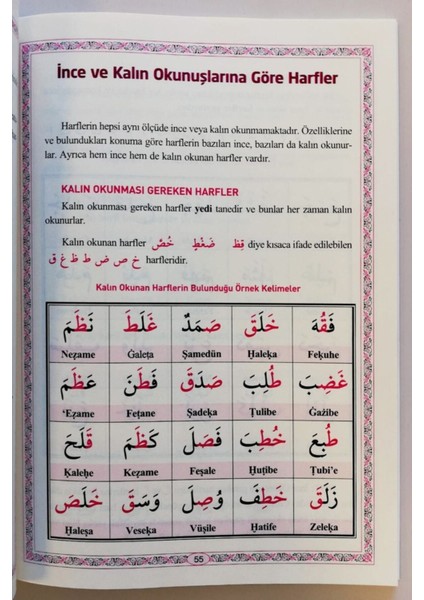 İnce ve Kalın Okunuşlarına Göre Harfler
Harflerin hepsi aynı ölçüde ince veya kalın okunmamaktadır. Özelliklerine
ve bulundukları konuma göre harflerin bazıları ince, bazıları da kalın okunur-
lar. Ayrıca hem ince hem de kalın okunan harfler vardır.
KALIN OKUNMASI GEREKEN HARFLER
Kalın okunması gereken harfler yedi tanedir ve bunlar her zaman kalın
okunurlar.
Kalın okunan harfler خُصَّ ضَغْطٍ قِظْ diye kısaca ifade edilebilen
خ ص ض ط ظ غ ق harfleridir.
Kalın Okunan Harflerin Bulunduğu Örnek Kelimeler
فَقُهَ خَلَقَ صَمَدٌ غَلَطَ نَظَمَ
Neẓame Ġaleṭa Ṣamedün Ḫaleḳa Feḳuhe
غَضِبَ طُلِبَ صَدَقَ فَطَنَ عَظَمَ
‘Eẓame Feṭane Ṣadeḳa Ṭulibe Ġażibe
طُبِعَ خُطِبَ فَصَلَ كَظَمَ قَلَحَ
Ḳaleḥe Keẓame Feṣale Ḫuṭibe Ṭubi‘e
زَلَقَ خَطِفَ وُصِلَ وَسَقَ خَلَصَ
Ḫaleṣa Veseḳa Vüṣile Ḫaṭife Zeleḳa
55